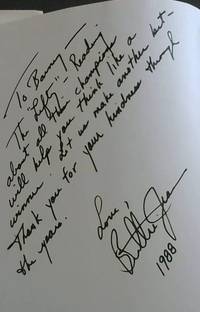 To Barry —
The "Lefty" — Reading
about all the champions
will help you think like a
winner. Let us make another bit—
Thank you for your kindness through
the years.
Love,
Billie Jean
1988